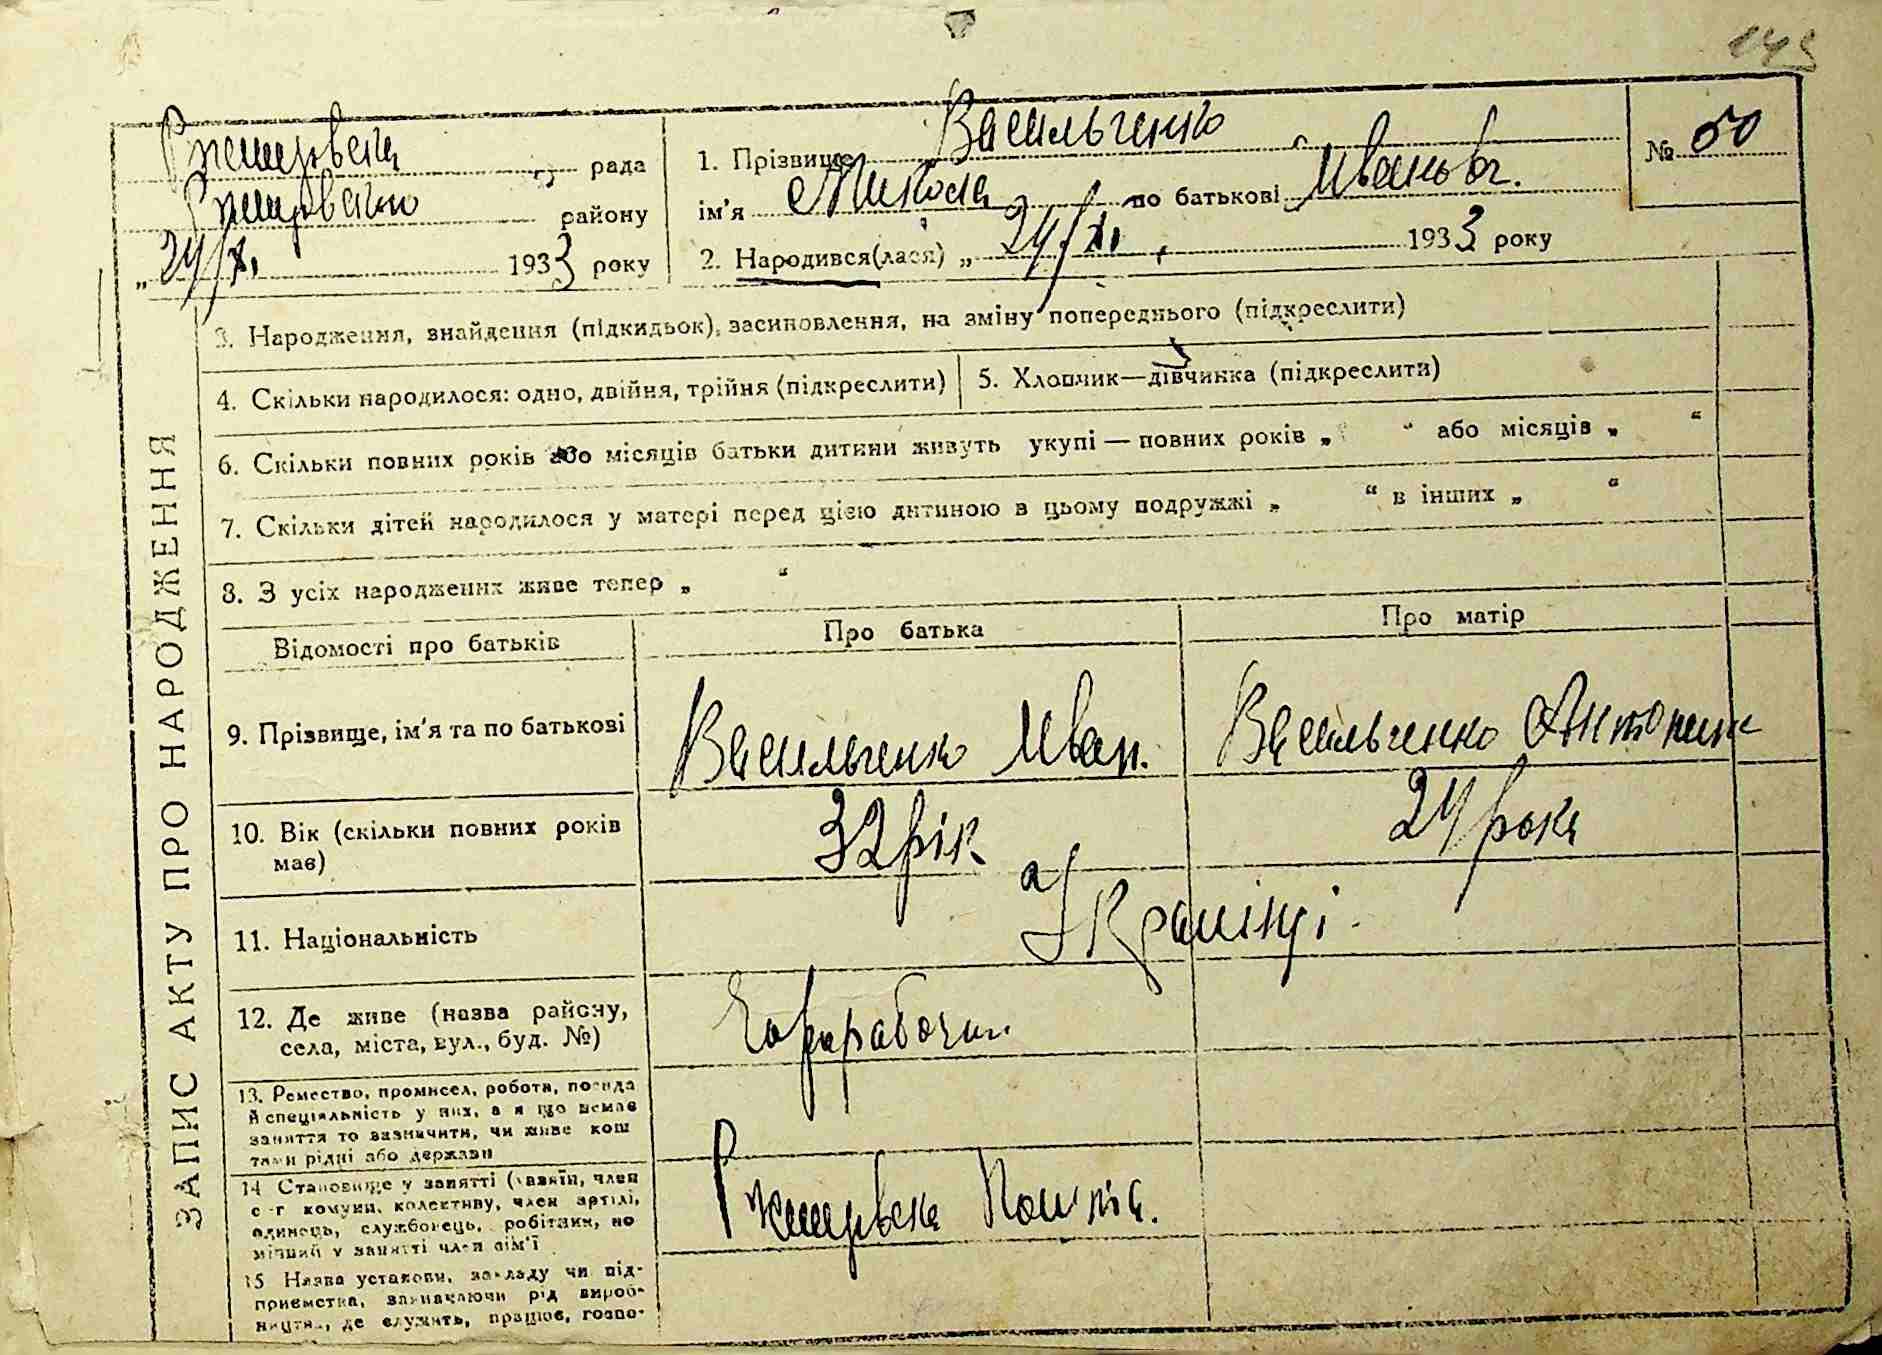 145
Ржищівська рада
Ржищівського району
„24/XI. 1933 року
1. Прізвище Васильченко
ім'я Микола по батькові Іванов.
2. Народився(лася) „ 24/XI. 1933 року
№ 50
3. Народження, знайдення (підкидьок), засиновлення, на зміну попереднього (підкреслити)
4. Скільки народилося: одно, двійня, трійня (підкреслити)
5. Хлопчик—дівчинка (підкреслити)
6. Скільки повних років або місяців батьки дитини живуть укупі — повних років „ “ або місяців „ “
7. Скільки дітей народилося у матері перед цією дитиною в цьому подружжі „ “ в інших „ “
8. З усіх народжених живе тепер „ “
ЗАПИС АКТУ ПРО НАРОДЖЕННЯ
Відомості про батьків
Про батька
Про матір
9. Прізвище, ім'я та по батькові
Васильченко Иван.
Васильченко Антонина
10. Вік (скільки повних років
має)
32 рік
24 рока
11. Національність
Українці.
12. Де живе (назва району,
села, міста, вул., буд. №)
13. Ремество, промисел, робота, посада
й спеціяльність у них, а якщо немає
заняття то зазначити, чи живе кош
тами рідні або держави
14 Становище у занятті (хазяїн, член
с-г комуни, колективу, член артілі,
одинець, службовець, робітник, по
мічний у занятті член сім'ї
Ржищівська
15 Назва установи, закладу чи під-
приємства, зазначаючи рід вироб-
ництва, де служить, працює, госпо-